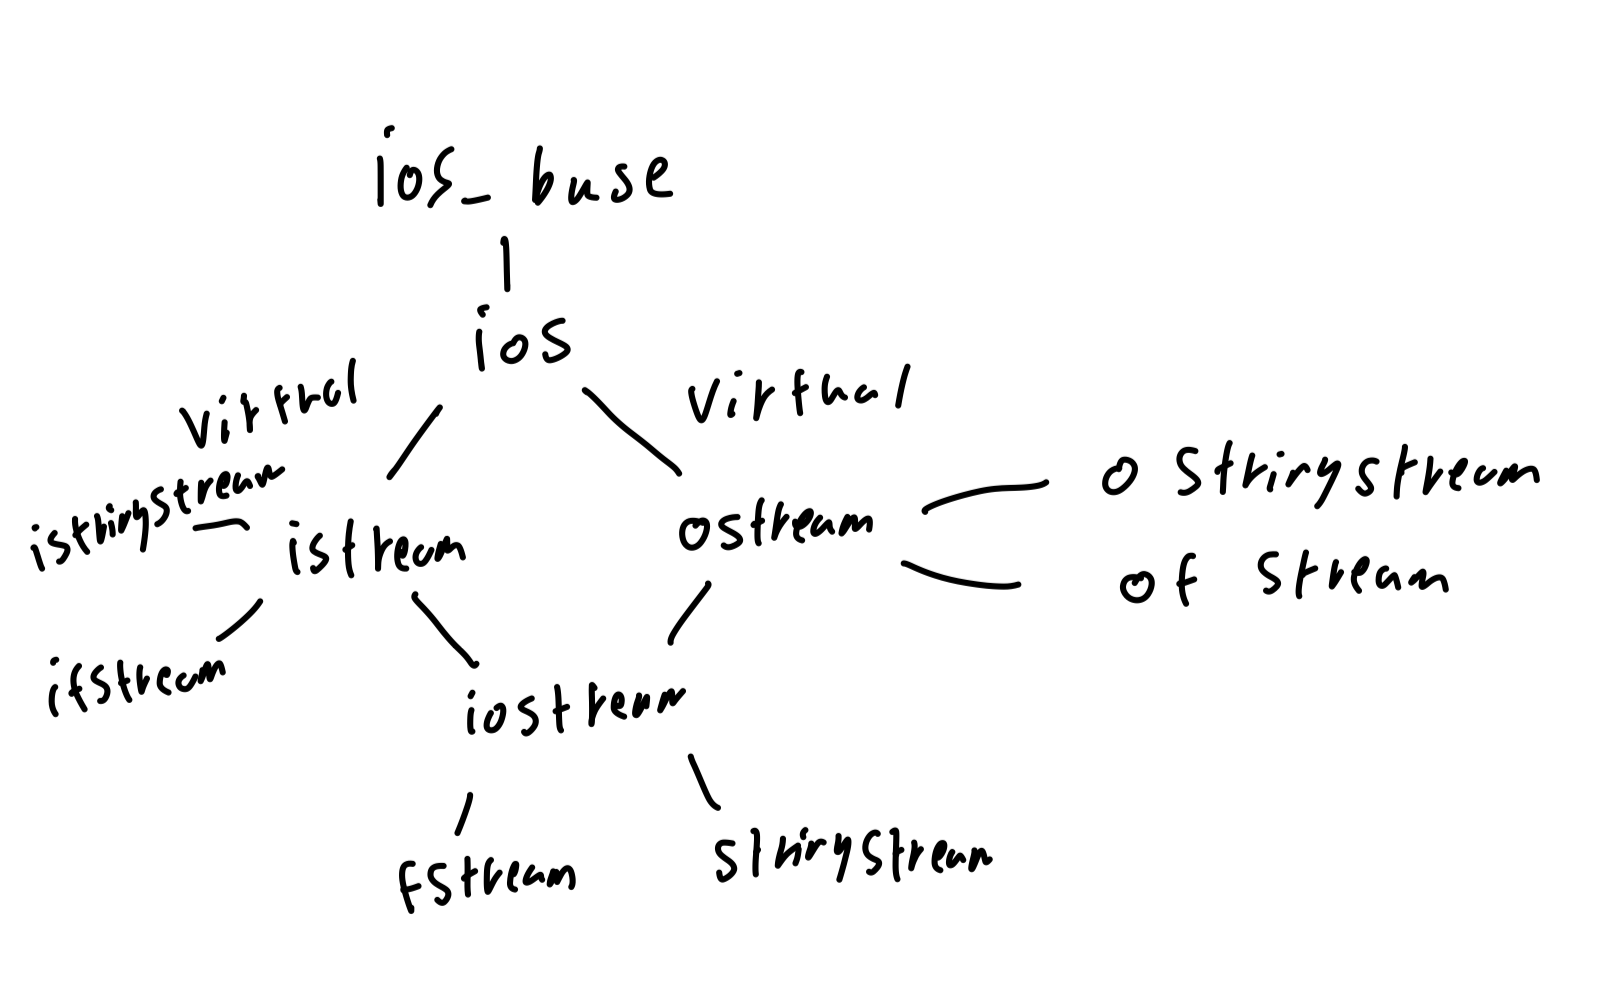 ios_ base
ios
virtual
virtual
istringstream
istream
ostream
o stringstream
of stream
ifstream
iostream
fstream
stringstream